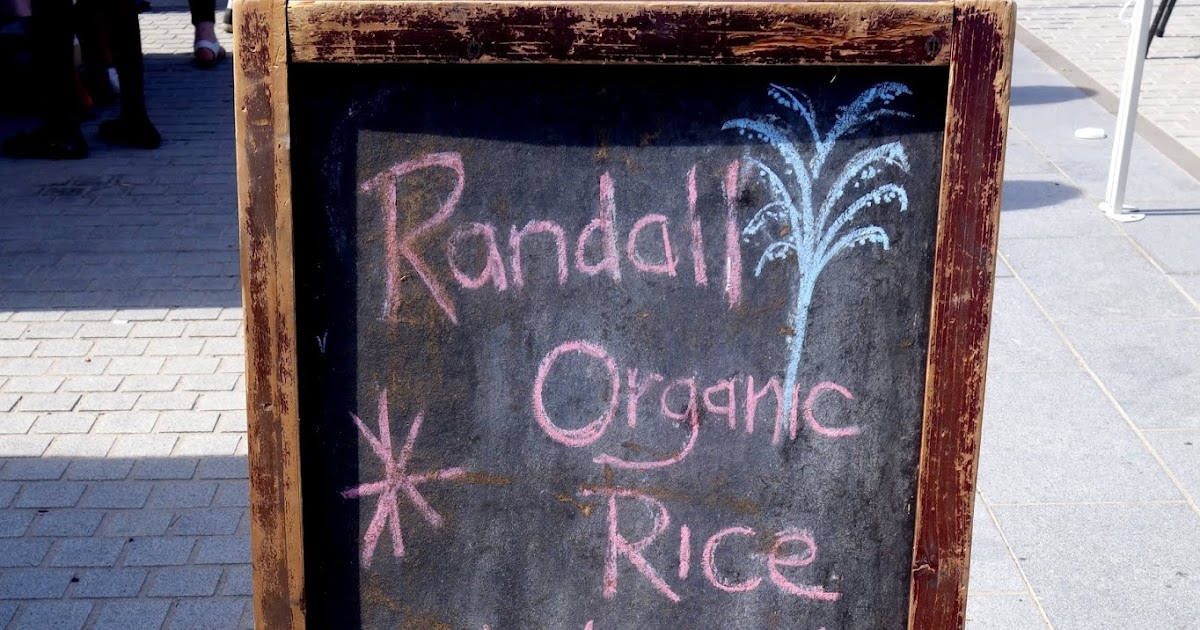 Randall
Organic
Rice